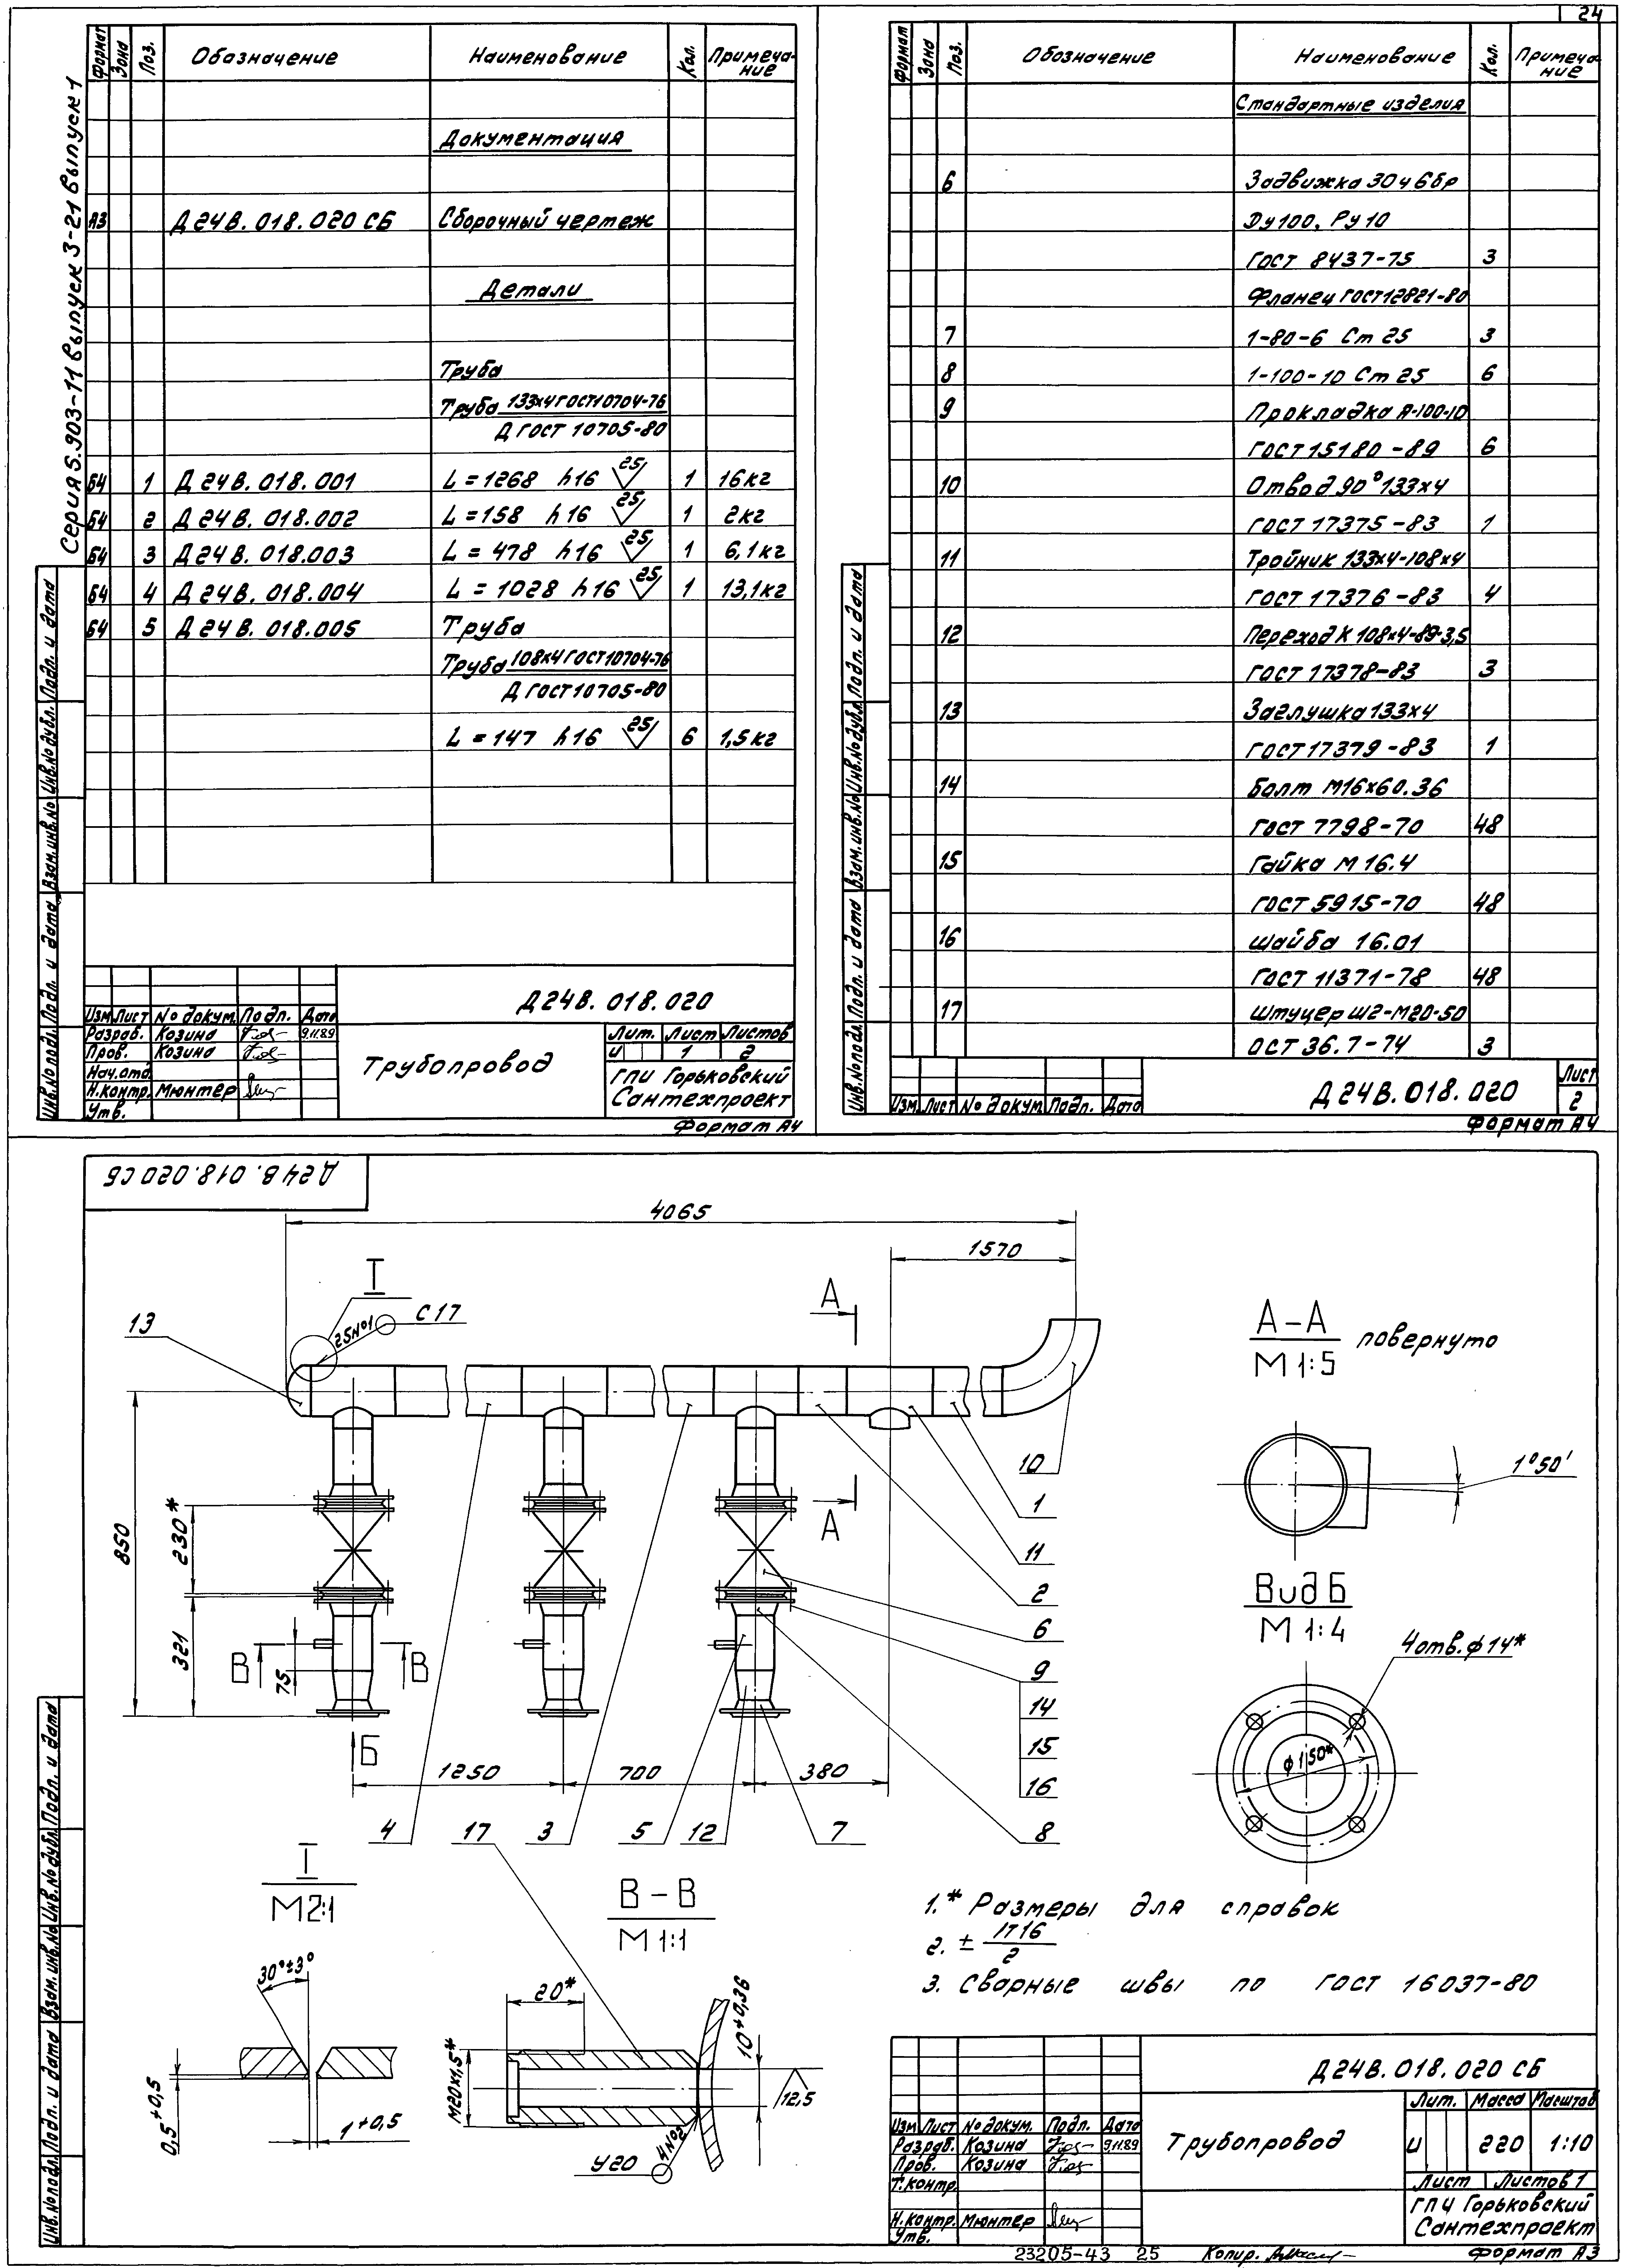 24
Серия 5.903-11 выпуск 3-21 выпуск 1
Формат Зона Поз. Обозначение Наименование Кол. Примеча-
ние
Документация
А3 Д24В.018.020 СБ Сборочный чертеж
Детали
Труба
Труба 133х4 ГОСТ 10704-76
Д ГОСТ 10705-80
Б4 1 Д24В.018.001 L=1268 h16 25 1 16кг
Б4 2 Д24В.018.002 L=158 h16 25 1 2кг
Б4 3 Д24В.018.003 L=478 h16 25 1 6,1кг
Б4 4 Д24В.018.004 L=1028 h16 25 1 13,1кг
Б4 5 Д24В.018.005 Труба
Труба 108х4 ГОСТ 10704-76
Д ГОСТ 10705-80
L=147 h16 25 6 1,5кг
Инв.№подл. Подп. и дата Взам.инв.№ Инв.№дубл. Подп. и дата
Д24В.018.020
Изм Лист № докум. Подп. Дата
Разраб. Козина 9.11.89
Пров. Козина
Нач.отд.
Н.контр. Мюнтер
Утв.
Трубопровод
Лит. Лист Листов
И 1 2
ГПИ Горьковский
Сантехпроект
Формат А4
Формат Зона Поз. Обозначение Наименование Кол. Примеча-
ние
Стандартные изделия
6 Задвижка 30ч6бр
Ду100, Ру10
ГОСТ 8437-75 3
Фланец ГОСТ 12821-80
7 1-80-6 Ст 25 3
8 1-100-10 Ст 25 6
9 Прокладка А-100-10
ГОСТ 15180-89 6
10 Отвод 90°133х4
ГОСТ 17375-83 1
11 Тройник 133х4-108х4
ГОСТ 17376-83 4
12 Переход К 108х4-89-3,5
ГОСТ 17378-83 3
13 Заглушка 133х4
ГОСТ 17379-83 1
14 Болт М16х60.36
ГОСТ 7798-70 48
15 Гайка М16.4
ГОСТ 5915-70 48
16 Шайба 16.01
ГОСТ 11371-78 48
17 Штуцер Ш2-М20-50
ОСТ 36.7-74 3
Инв.№подл. Подп. и дата Взам.инв.№ Инв.№дубл. Подп. и дата
Изм. Лист № докум. Подп. Дата
Д24В.018.020
Лист
2
Формат А4
Д24В.018.020 СБ
4065
1570
I
13
25№1
С17
А
А
850
230*
321
75
В
В
Б
1250
700
380
10
1
11
2
6
9
14
15
16
8
4
17
3
5
12
7
А-А
М 1:5
повернуто
1°50'
Вид Б
М 1:4
4отв.ф14*
ф150*
I
М2:1
30°±3°
0,5+0,5
1+0,5
В-В
М 1:1
20*
М20х1,5*
10+0,36
12,5
У20
4№2
1.* Размеры для справок
2. ± IT16
2
3. Сварные швы по ГОСТ 16037-80
Инв.№подл. Подп. и дата Взам.инв.№ Инв.№дубл. Подп. и дата
Д24В.018.020 СБ
Изм Лист № докум. Подп. Дата
Разраб. Козина 9.11.89
Пров. Козина
Т.контр.
Н.контр. Мюнтер
Утв.
Трубопровод
Лит. Масса Масштаб
И 220 1:10
Лист Листов 1
ГПИ Горьковский
Сантехпроект
23205-43 25 Копир.
Формат А3